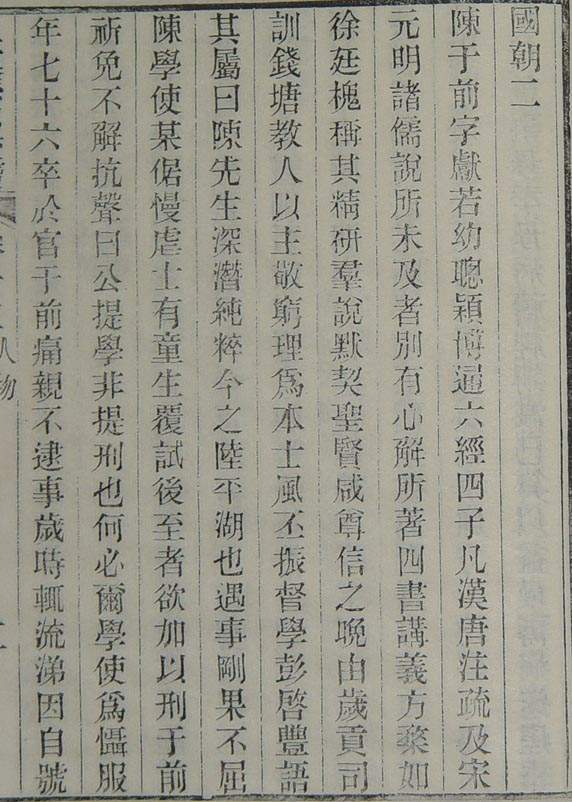 國朝二
陳于前字獻若幼聰穎博通六經四子凡漢唐注疏及宋
元明諸儒說所未及者別有心解所著四書講義方棃如
徐廷槐稱其精研羣說默契聖賢咸尊信之晚由歲貢司
訓錢塘教人以主敬窮理爲本士風丕振督學彭啓豐語
其屬曰陳先生深潛純粹今之陸平湖也遇事剛果不屈
陳學使某倨慢虐士有童生覆試後至者欲加以刑于前
祈免不解抗聲曰公提學非提刑也何必爾學使爲懾服
年七十六卒於官于前痛親不逮事歲時輒流涕因自號
人物